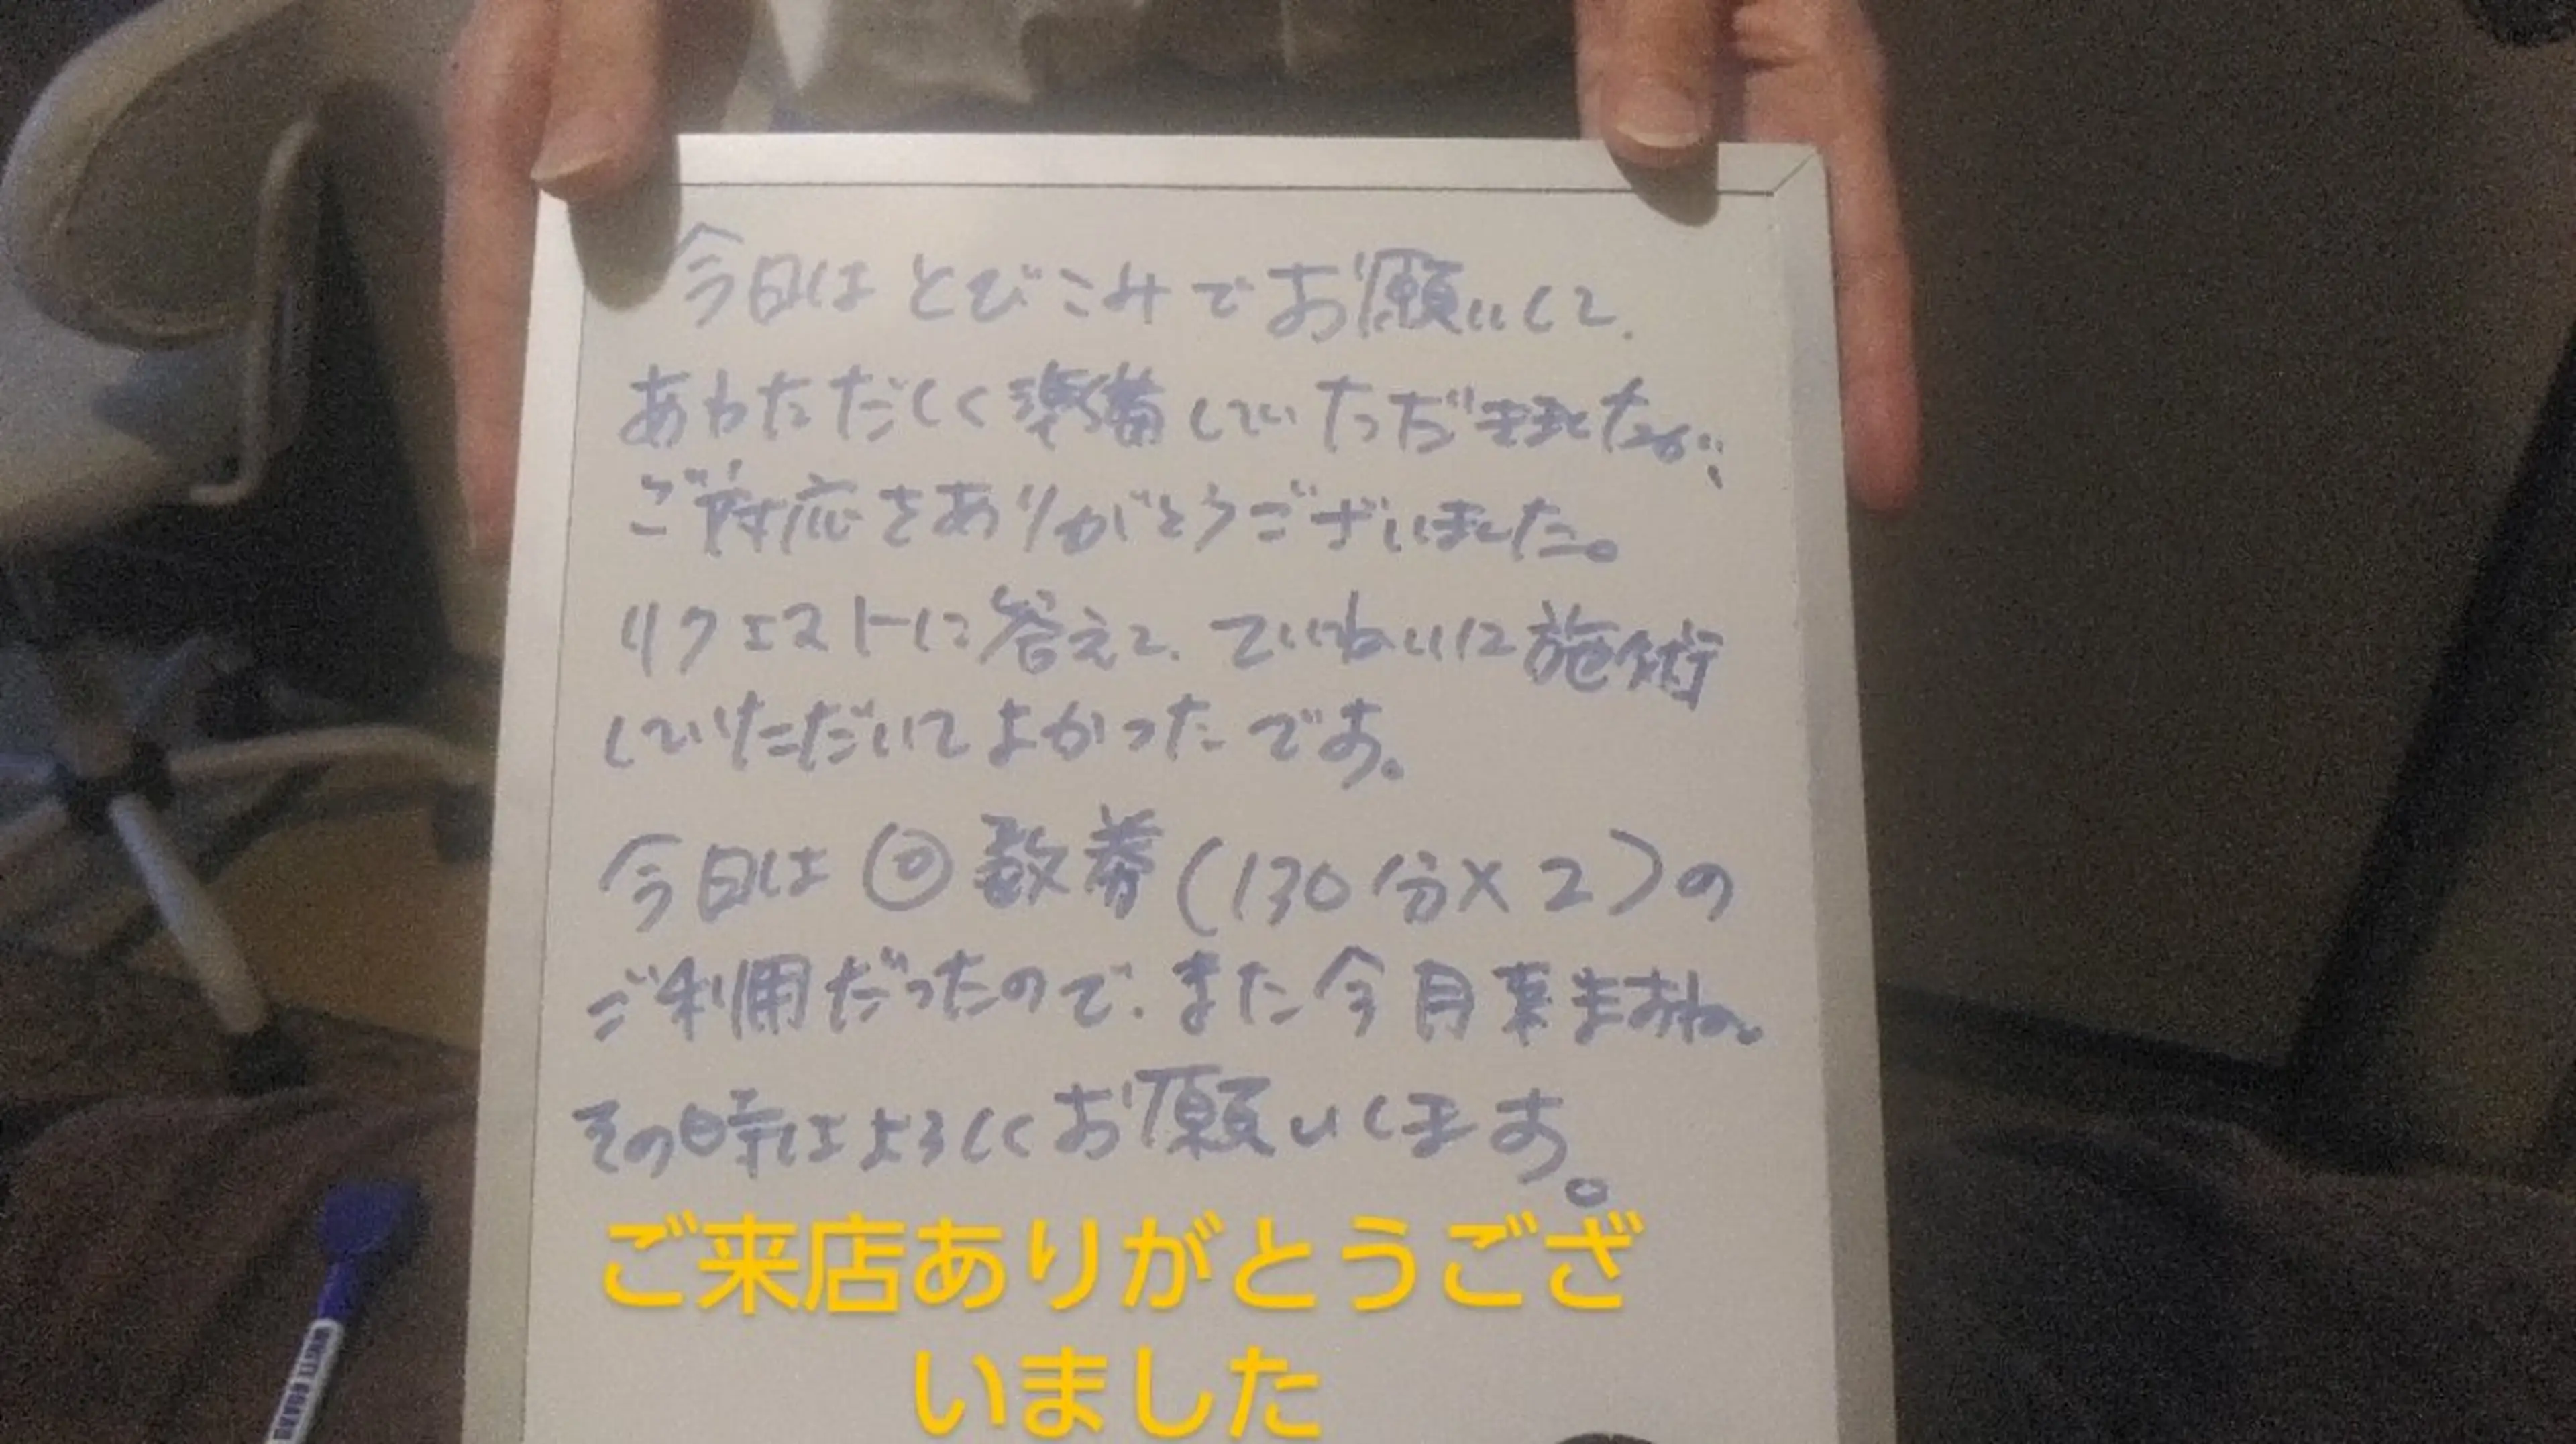 今日はとびこみでお願いして、
あわただしく準備していただきましたが、
ご対応をありがとうございました。
リクエストに答えて、ていねいに施術
していただいてよかったです。
今日は回数券(130分×2)の
ご利用だったので、また今月来ますね。
その時はよろしくお願いします。
ご来店ありがとうござ
いました
WHITE BOARD